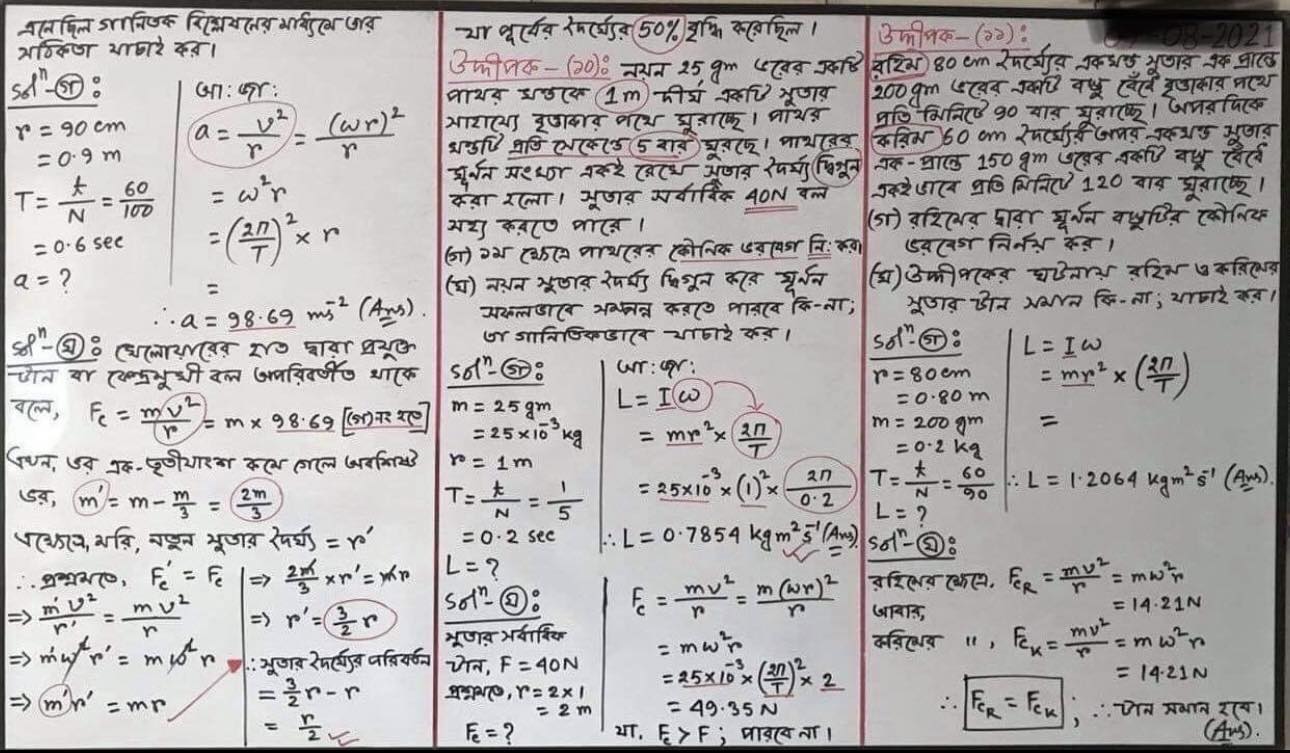 এনেছিল গাণিতিক বিশ্লেষণের মাধ্যমে তার
সঠিকতা যাচাই কর।
solⁿ-(গ):
r = 90 cm
= 0.9 m
T = t/N = 60/100
= 0.6 sec
a = ?
আ: জা:
a = v²/r = (ωr)²/r
= ω²r
= (2π/T)² × r
=
∴ a = 98.69 ms⁻² (Ans).
solⁿ-(ঘ): খেলোয়ারের হাত দ্বারা প্রযুক্ত
টান বা কেন্দ্রমুখী বল অপরিবর্তীত থাকে
বলে, F_c = mv²/r = m × 98.69 [(গ) নং হতে]
এখন, ভর এক-তৃতীয়াংশ কমে গেলে অবশিষ্ট
ভর, m' = m - m/3 = 2m/3
এক্ষেত্রে, ধরি, নতুন সুতার দৈর্ঘ্য = r'
∴ প্রশ্নমতে, F_c' = F_c
⇒ m'v²/r' = mv²/r
⇒ m'ω²r' = mω²r
⇒ m'r' = mr
⇒ 2m/3 × r' = mr
⇒ r' = 3/2 r
∴ সুতার দৈর্ঘ্যের পরিবর্তন
= 3/2 r - r
= r/2
যা পূর্বের দৈর্ঘ্যের 50% বৃদ্ধি করেছিল।
উদ্দীপক-(১০): নয়ন 25 gm ভরের একটি
পাথর খন্ডকে 1m দীর্ঘ একটি সুতার
সাহায্যে বৃত্তাকার পথে ঘুরাচ্ছে। পাথর
খন্ডটি প্রতি সেকেন্ডে 5 বার ঘুরছে। পাথরের
ঘূর্ণন সংখ্যা একই রেখে সুতার দৈর্ঘ্য দ্বিগুন
করা হলো। সুতার সর্বাধিক 40N বল
সহ্য করতে পারে।
(গ) ১ম ক্ষেত্রে পাথরের কৌনিক ভরবেগ নি: কর।
(ঘ) নয়ন সুতার দৈর্ঘ্য দ্বিগুন করে ঘূর্ণন
সফলভাবে সম্পন্ন করতে পারবে কি-না;
তা গানিতিকভাবে যাচাই কর।
solⁿ-(গ):
m = 25 gm
= 25×10⁻³ kg
r = 1 m
T = t/N = 1/5
= 0.2 sec
L = ?
আ: জা:
L = Iω
= mr² × 2π/T
= 25×10⁻³ × (1)² × 2π/0.2
∴ L = 0.7854 kgm²s⁻¹ (Ans).
solⁿ-(ঘ):
সুতার সর্বাধিক
টান, F = 40N
প্রশ্নমতে, r = 2×1
= 2 m
F_c = ?
F_c = mv²/r = m(ωr)²/r
= mω²r
= 25×10⁻³ × (2π/T)² × 2
= 49.35 N
যা, F_c > F; পারবে না।
উদ্দীপক-(১১):
08-2021
রহিম 80 cm দৈর্ঘ্যের একখন্ড সুতার এক প্রান্তে
200 gm ভরের একটি বস্তু বেঁধে বৃত্তাকার পথে
প্রতি মিনিটে 90 বার ঘুরাচ্ছে। অপরদিকে
করিম 60 cm দৈর্ঘ্যের অপর একখন্ড সুতার
এক-প্রান্তে 150 gm ভরের একটি বস্তু বেঁধে
একইভাবে প্রতি মিনিটে 120 বার ঘুরাচ্ছে।
(গ) রহিমের দ্বারা ঘূর্ণন বস্তুটির কৌনিক
ভরবেগ নির্নয় কর।
(ঘ) উদ্দীপকের ঘটনায় রহিম ও করিমের
সুতার টান সমান কি-না; যাচাই কর।
solⁿ-(গ):
r = 80 cm
= 0.80 m
m = 200 gm
= 0.2 kg
T = t/N = 60/90
L = ?
L = Iω
= mr² × (2π/T)
=
∴ L = 1.2064 kgm²s⁻¹ (Ans).
solⁿ-(ঘ):
রহিমের ক্ষেত্রে, F_cR = mv²/r = mω²r
= 14.21N
আবার,
করিমের ", F_cK = mv²/r = mω²r
= 14.21N
∴ F_cR = F_cK ; ∴ টান সমান হবে।
(Ans).